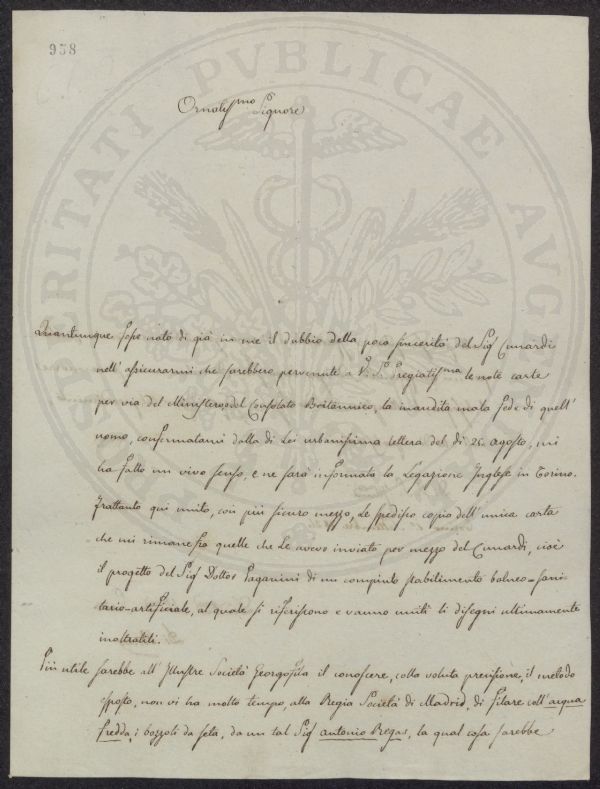 958
Ornatissmo Signore
Quantunque fosse nato di già in me il dubbio della poca sincerità del Sig Cunardi
nell' assicurarmi che sarebbero pervenute a V. S. Pregiatissma le note carte
per via del Ministero, o del Consolato Britannico, la inaudita mala fede di quell'
uomo, confermatami dalla di Lei urbanissima lettera del dì 25. agosto, mi
ha fatto un vivo senso, e ne sarà informata la Legazione Inglese in Torino.
Frattanto qui unito, con più sicuro mezzo, Le spedisco copia dell' unica carta
che mi rimane fra quelle che Le avevo inviato per mezzo del Cunardi, cioè
il progetto del Sig Dottor Paganini di un compiuto stabilimento balneo=sani
tario=artificiale, al quale si riferissono e vanno uniti li disegni ultimamente
inoltratiti.
Più utile sarebbe all' Illustre Società Georgofila il conoscere, colla voluta precisione, il metodo
esposto, non vi ha molto tempo, alla Regia Società di Madrid, di filare coll' acqua
fredda, i bozzoli da seta, da un tal Sig Antonio Regas, la qual cosa sarebbe
PROSPERITATI PVBLICAE AVGENDAE